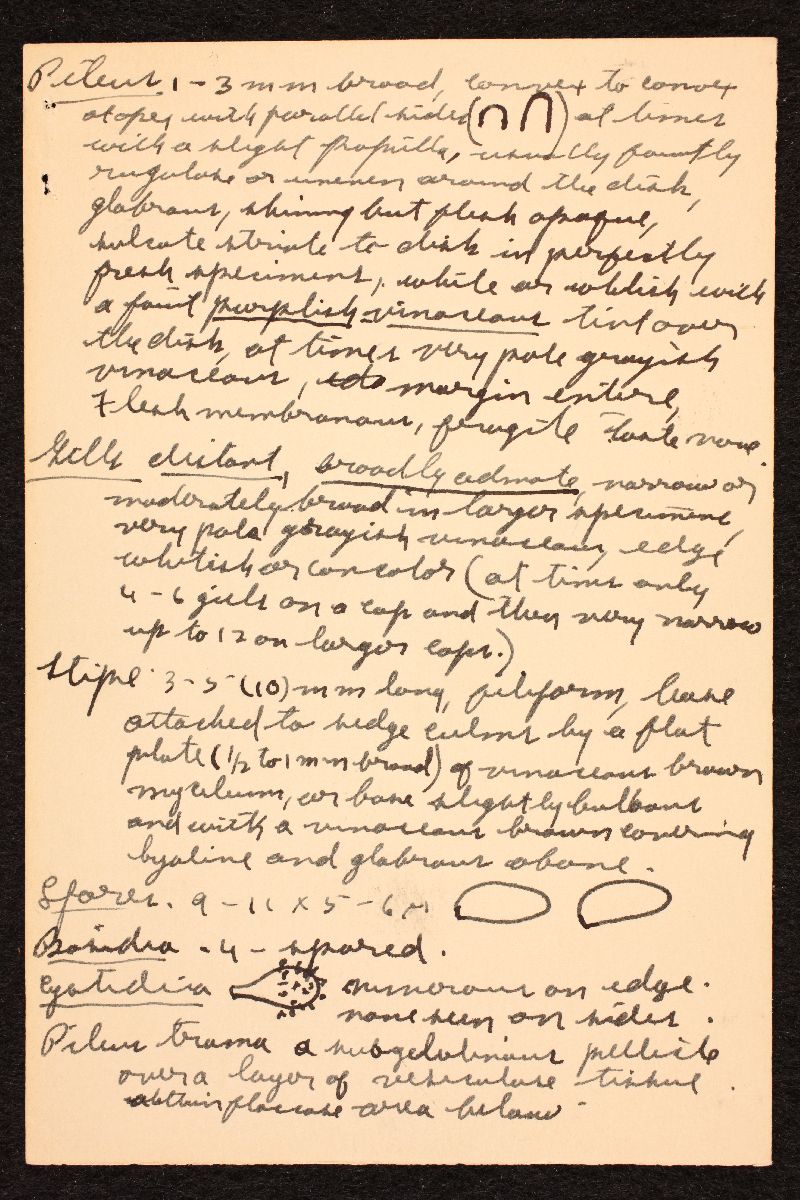 Pileus. 1-3 mm broad, convex to convex
at apex with parallel sides ( ) at times
with a slight papilla, usually faintly
rugulose or uneven around the disk,
glabrous, shining but flesh opaque,
sulcate striate to disk in perfectly
fresh specimens, white or whitish with
a faint purplish-vinaceous tint over
the disk, at times very pale grayish
vinaceous, margin entire,
Flesh membranous, fragile Taste none.
Gills distant, broadly adnate, narrow or
moderately broad in larger specimens,
very pale grayish vinaceous, edge
whitish or concolor (at times only
4-6 gills on a cap and then very narrow
up to 12 on larger caps.)
Stipe 3-5 (10) mm long, filiform, base
attached to sedge culms by a flat
plate (1/2 to 1 mm broad) of vinaceous brown
mycelium, or base slightly bulbous
and with a vinaceous brown covering
hyaline and glabrous above.
Spores. 9-11 x 5-6 µ
Basidia - 4-spored.
Cystidia numerous on edge.
none seen on sides.
Pileus trama a subgelatinous pellicle
over a layer of vesiculose tissue.
floccose area below